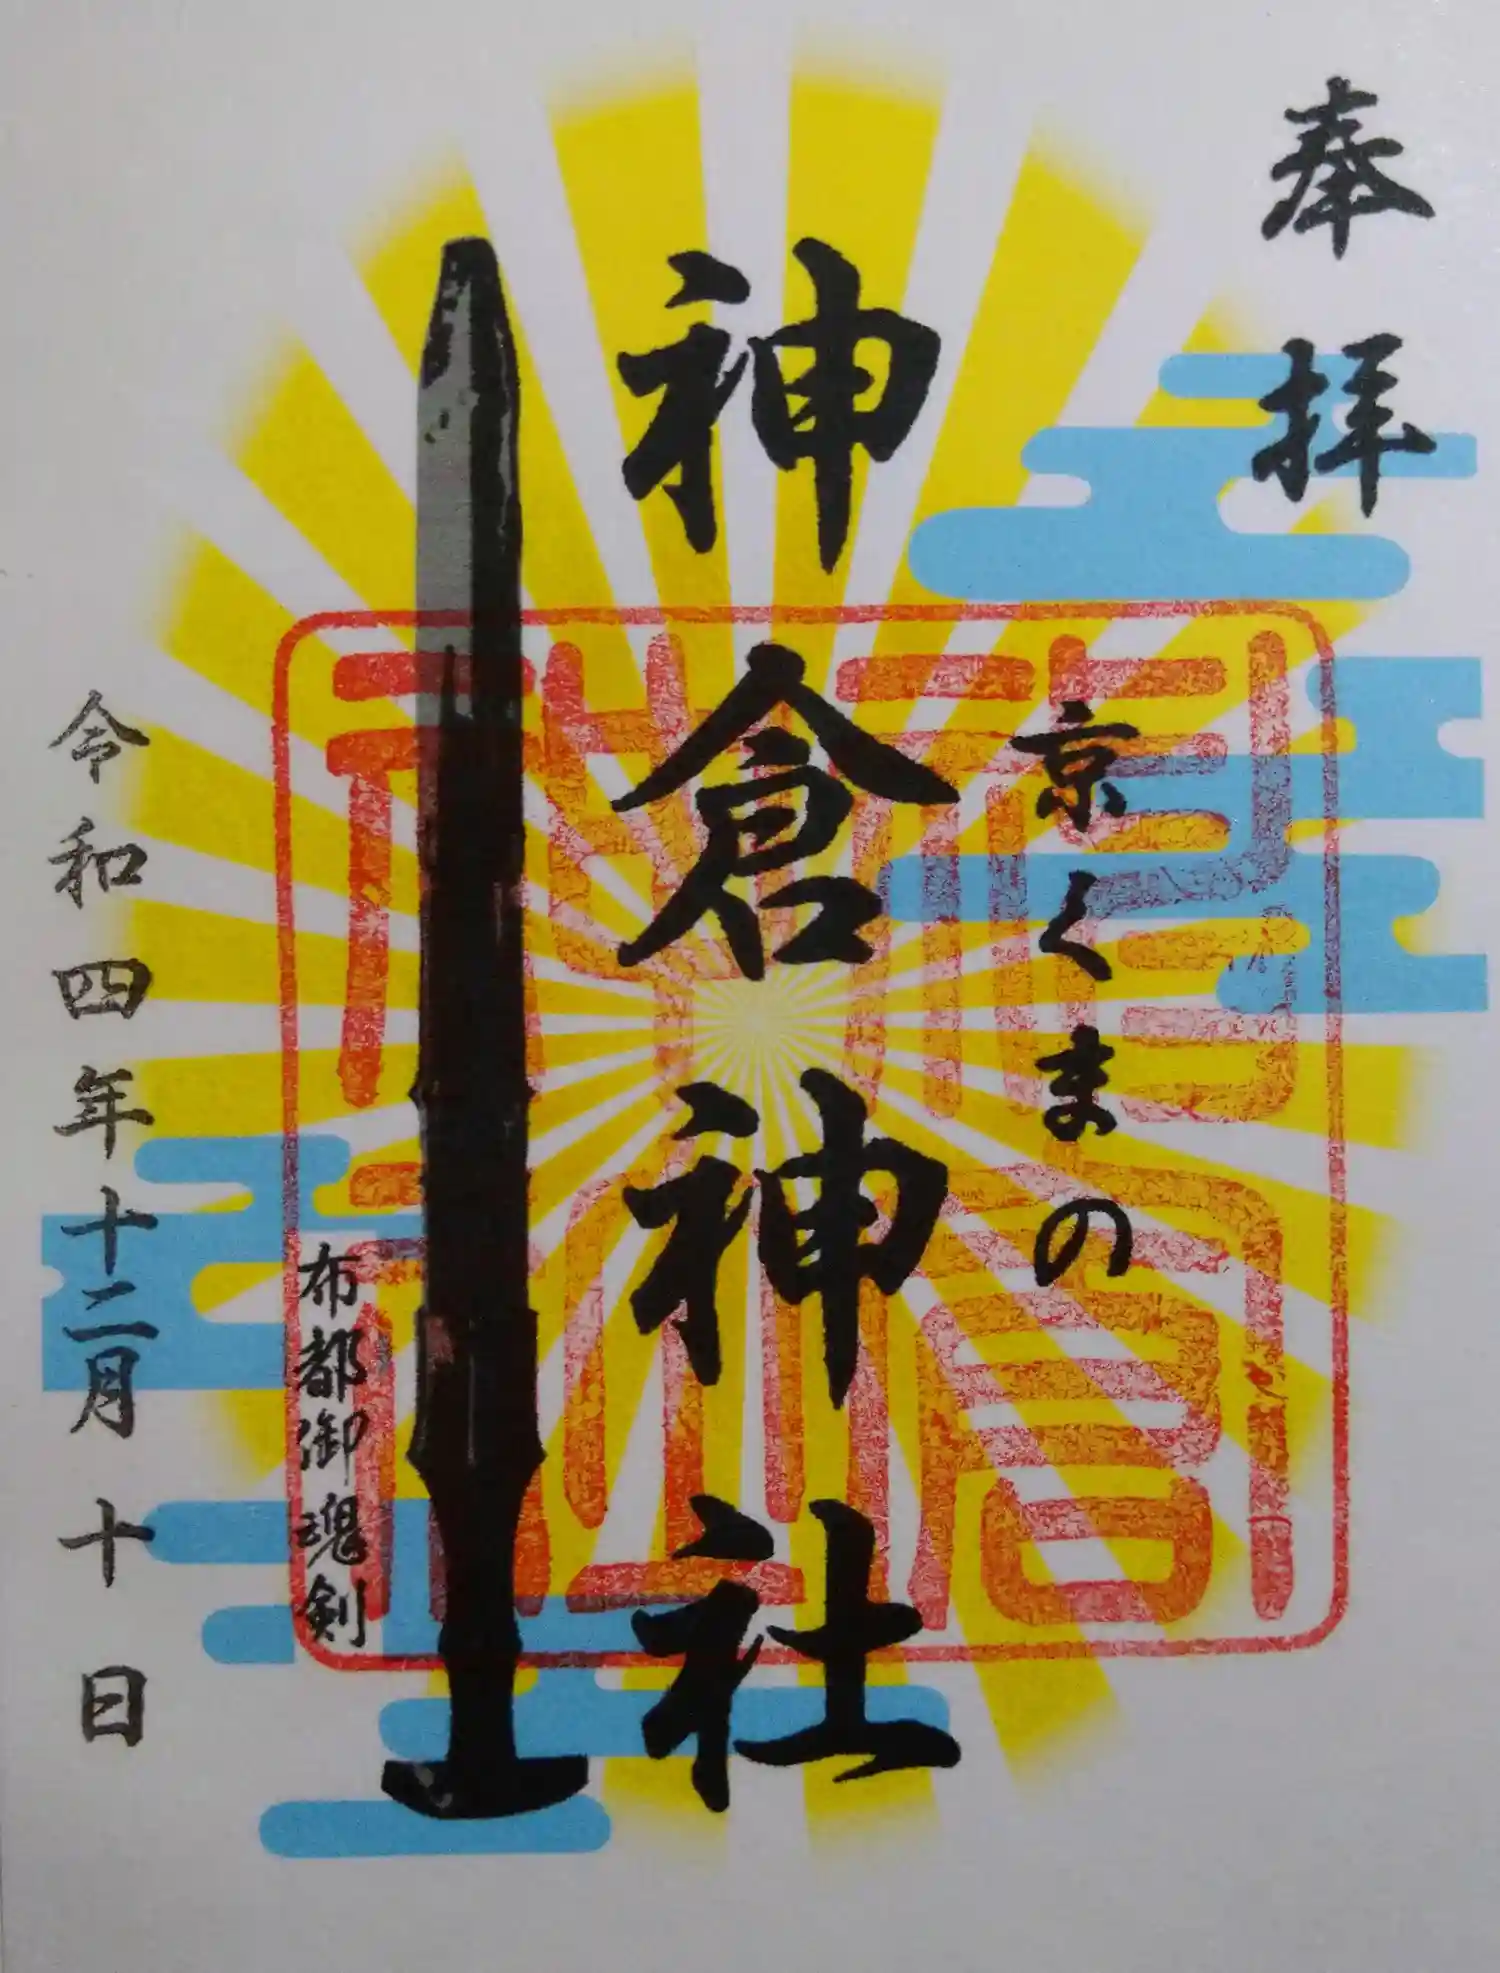 奉拝
京くまの
神倉神社
布都御魂剣
令和四年十二月十日